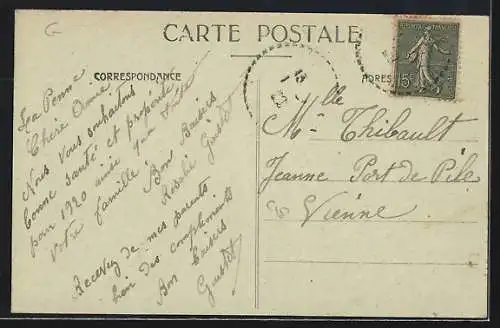 CARTE POSTALE
CORRESPONDANCE
ADRES
15c
La Penne
Chère Amie
Nous vous souhaitons
bonne santé et prospérité
pour 1920 ainsi qu'a toute
votre famille
Bon Baisers
Rosalie Gustot
Recevez de mes parents
bien des compliments
Bon Baisers
Gustot
Mlle
Thibault
Jeanne Port de Pile
Vienne